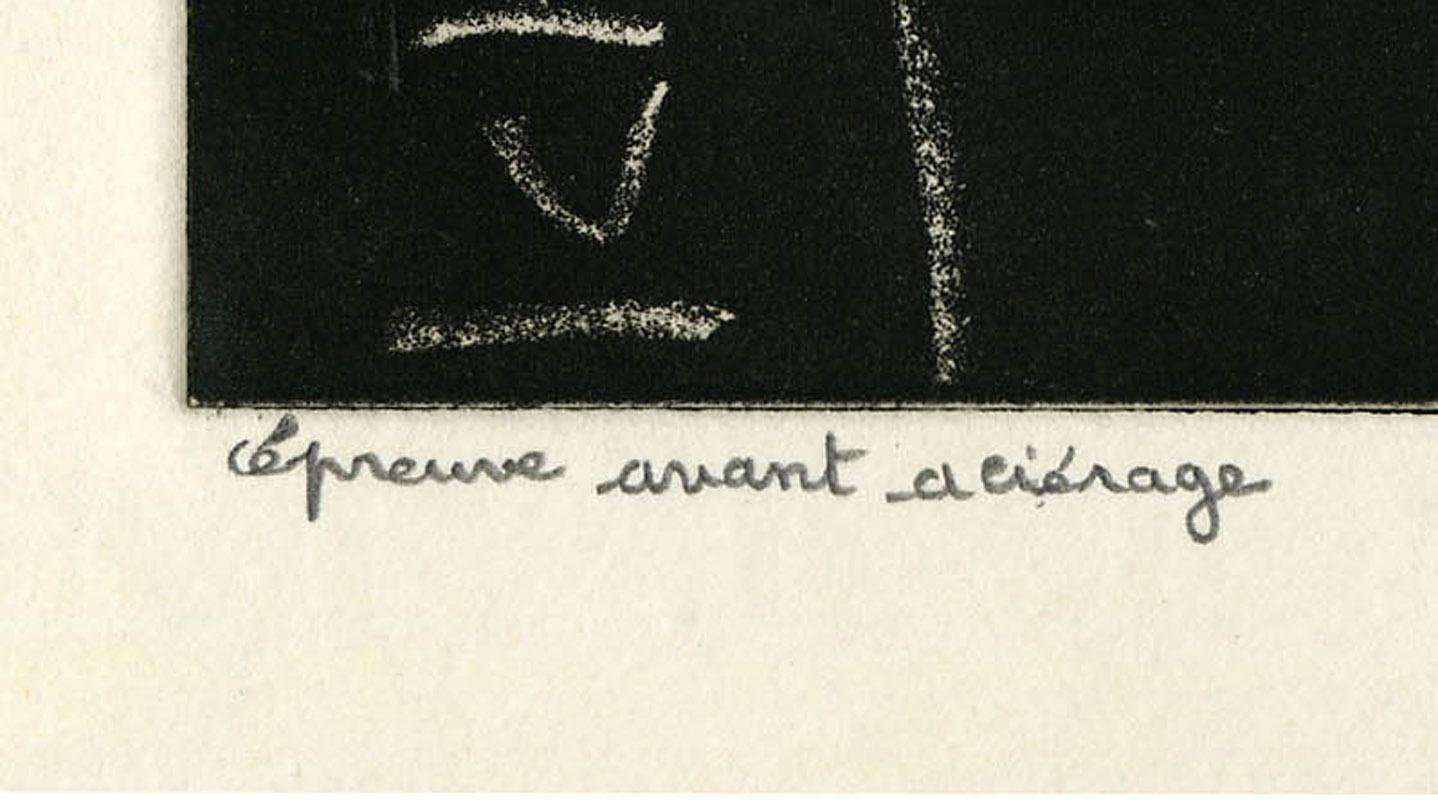 épreuve avant aciérage